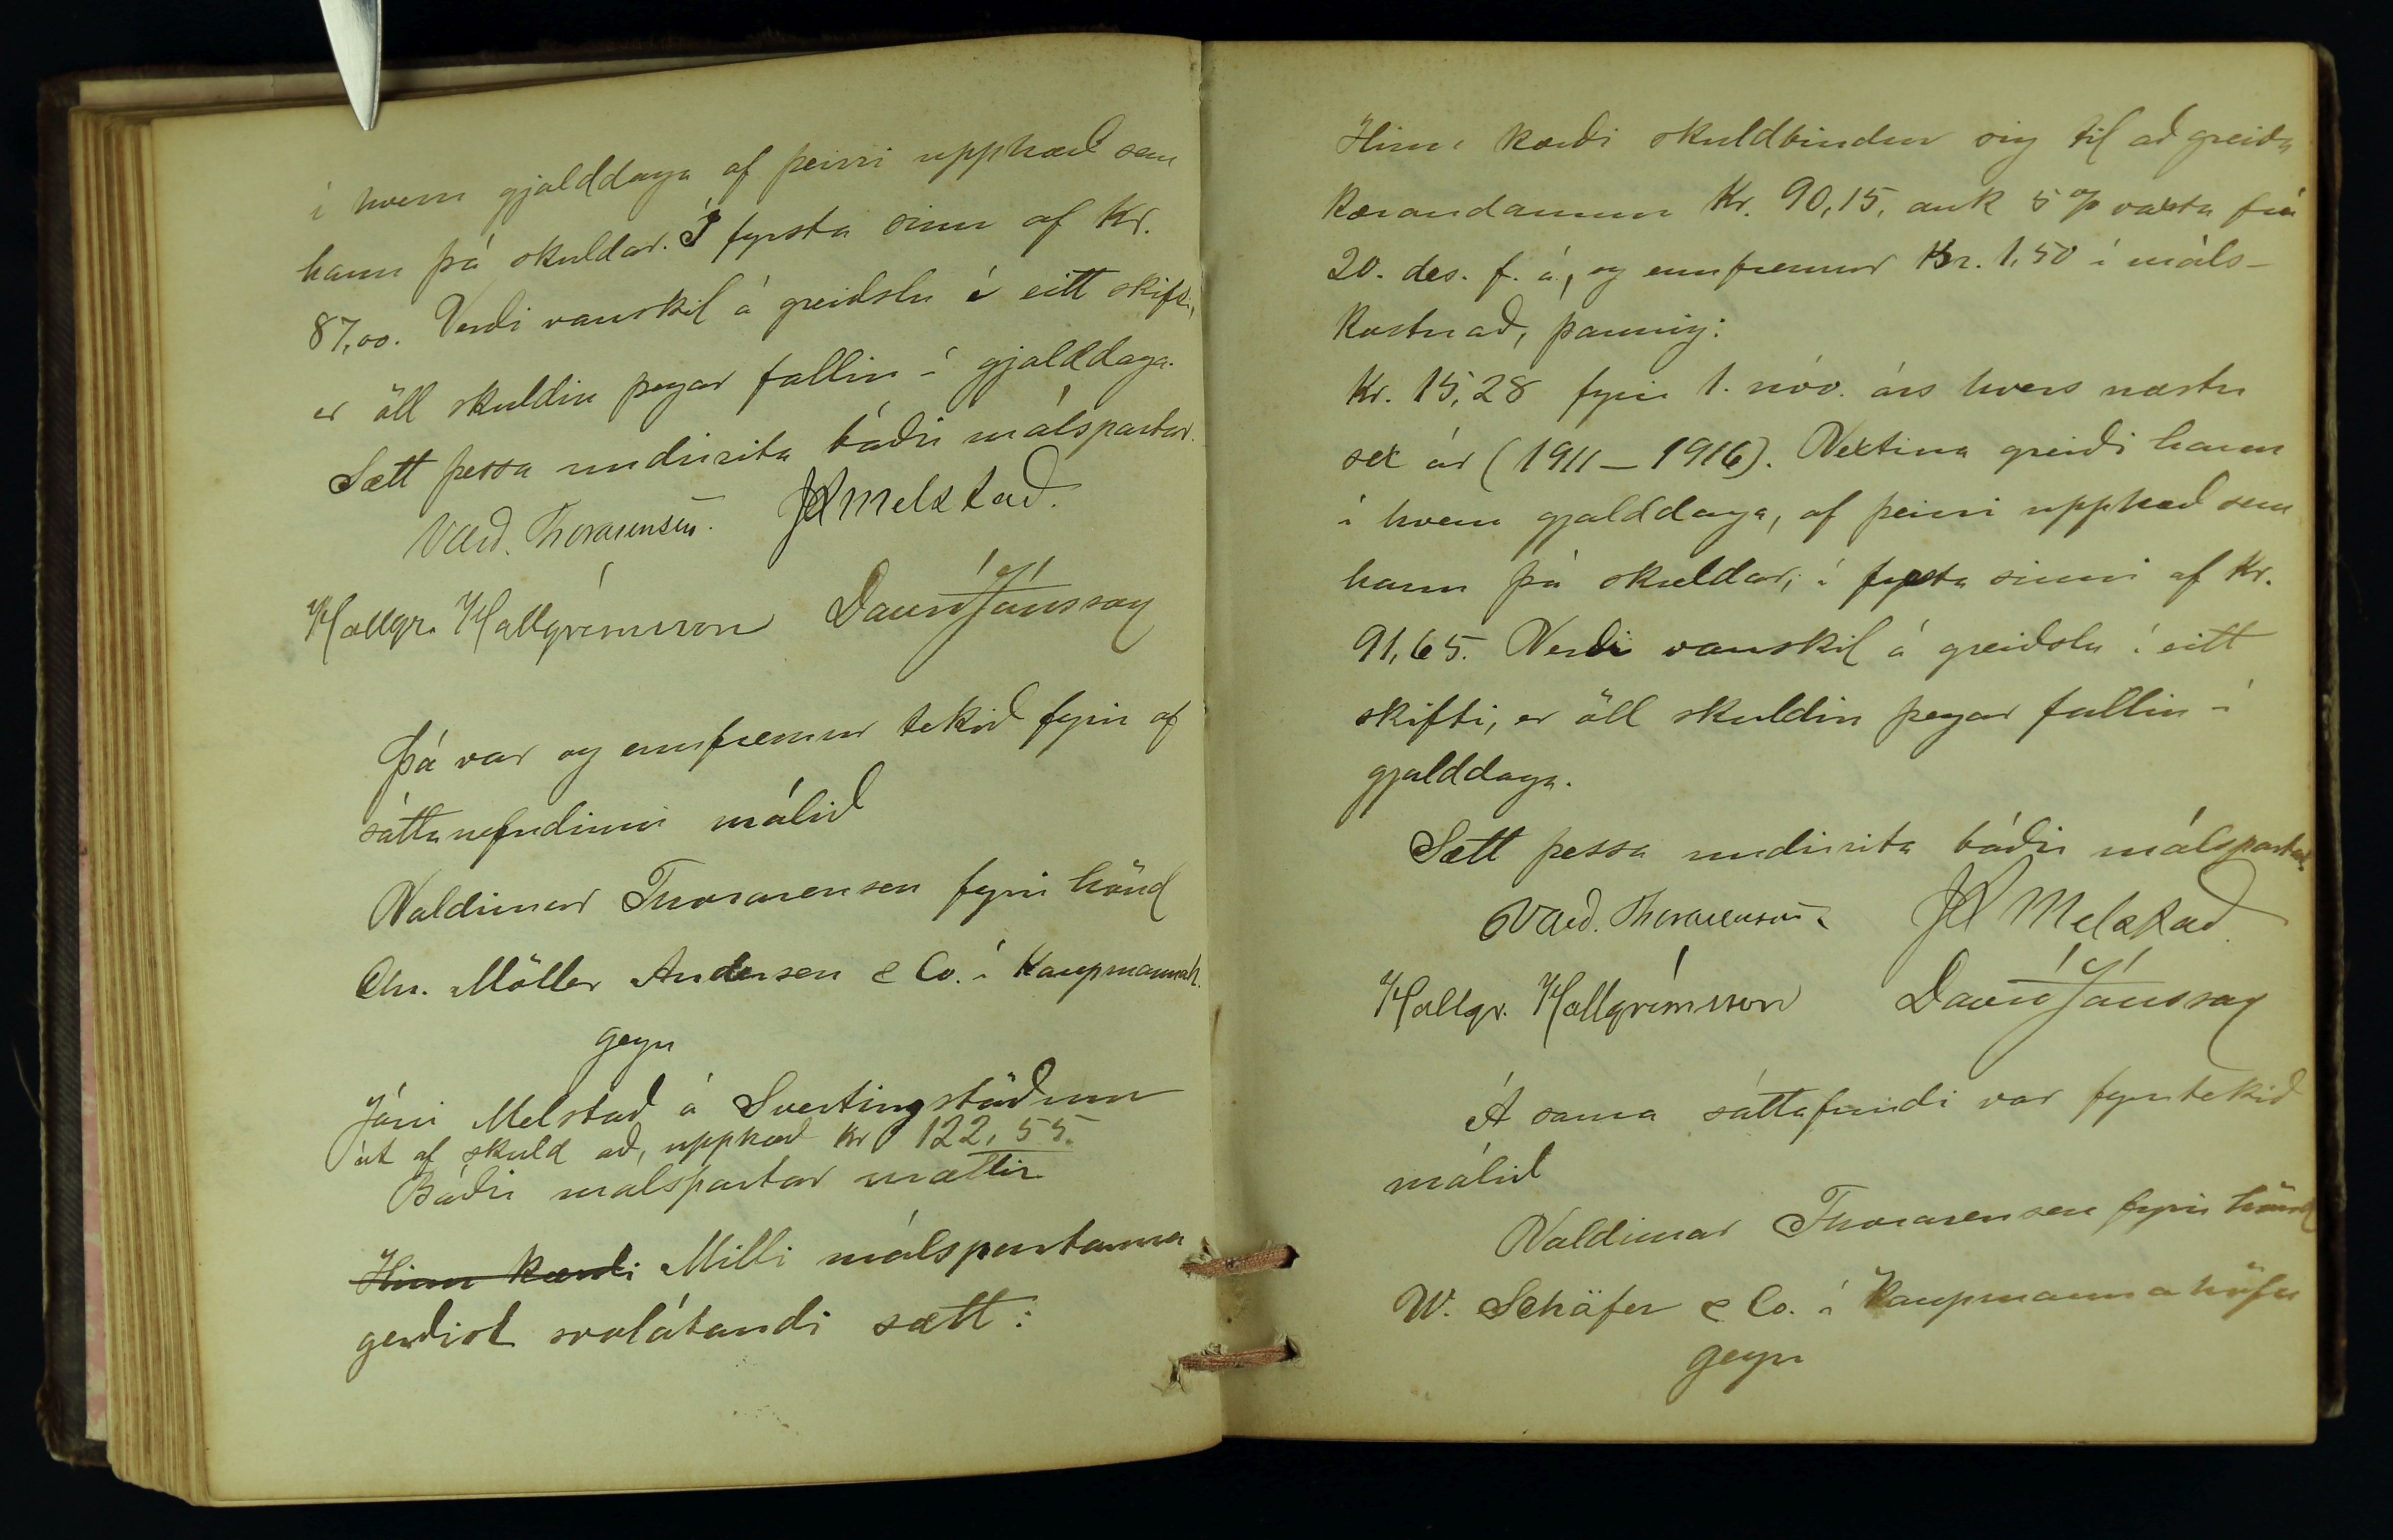 í hvern gjalddaga af þeirri upphæð sem
hann þá skuldar. Í fyrsta sinn af Kr.
87,00. Verði vanskil á greiðslu í eitt skifti,
er öll skuldin þegar fallin í gjalddaga.
Sætt þessa undirrita báðir málspartar.
Vald. Thorarensen. JMelstað.
Hallgr. Hallgrímsson Davíð Jónsson
Þá var og ennfremur tekið fyrir af
sáttanefndinni málið
Valdimar Thorarensen fyrir hönd
Chr. Möller Andersen & Co. í Kaupmannah.
gegn
Jóni Melstað á Svertingsstöðum
út af skuld að, upphæð kr 122,55.
Báðir malspartar mættir
Hinn kærði Milli málspartanna
gerðist svolátandi sætt:
Hinn kærði skuldbindur sig til að greiða
kærandanum Kr. 90,15, auk 5% vaxta frá
20. des. f. á., og ennfremur Kr. 1,50 í máls-
kostnað, þannig:
Kr. 15,28 fyrir 1. nóv. árs hvers næstu
sex ár (1911–1916). Vextina greiði hann
í hvern gjalddaga, af þeirri upphæð sem
hann þá skuldar, í fyrsta sinni af Kr.
91,65. Verði vanskil á greiðslu í eitt
skifti, er öll skuldin þegar fallin í
gjalddaga.
Sætt þessa undirrita báðir málspartar.
Vald. Thorarensen. J Melstað.
Hallgr. Hallgrímsson Davíð Jónsson
Á sama sáttafundi var fyrirtekið
málið
Valdimar Thorarensen fyrir hönd
W. Schäfer & Co. í Kaupmannahöfn
gegn